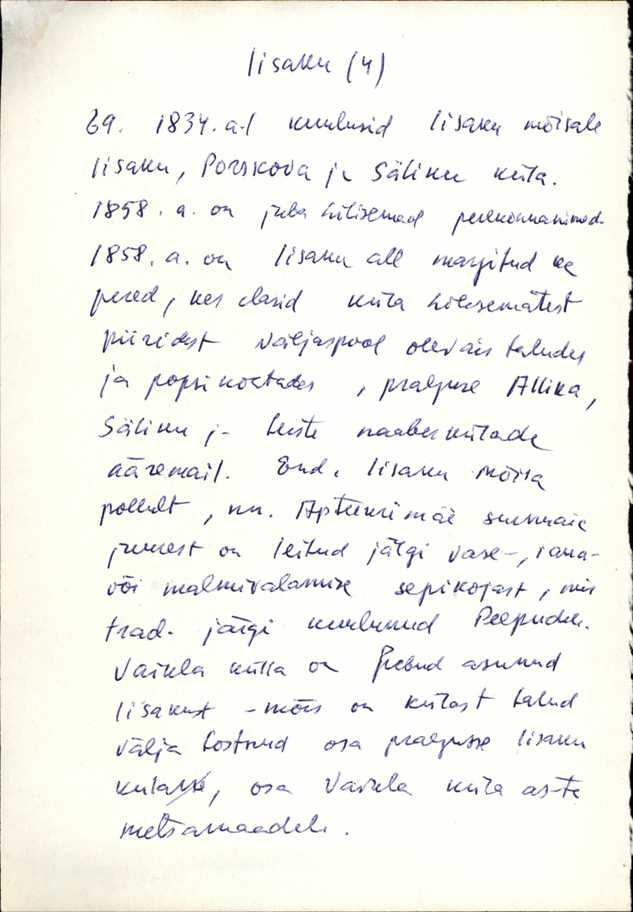 Iisaku (4)
69. 1834. a-l kuulusid Iisaku mõisale
Iisaku, Porskova ja Säliku küla.
1858. a. on juba hilisemad perekonnanimed.
1858. a. on Iisaku all märgitud ka
pered, kes elasid küla hilisematest
piiridest väljaspool olevais taludes
ja popsikohtades, praeguse Allika,
Säliku j- teiste naaberkülade
ääremail. End. Iisaku mõisa
põllult, nn. Apteekrimäe suurmaie
juurest on leitud jälgi vase-, raua-
või malmivalamise sepikojast, mis
trad. järgi kuulunud Peepudele.
Vaikla külla on pered asunud
Iisakust - mõis on külast talud
välja tõstnud osa praegusse Iisaku
külasse, osa Vaikla küla as-te
metsamaadele.